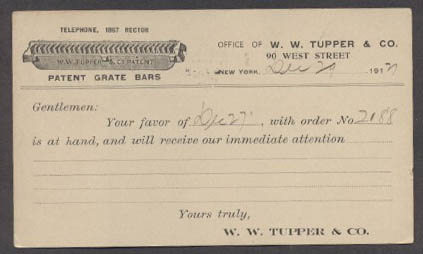 TELEPHONE, 1867 RECTOR
W. W. TUPPER & CO PATENT
PATENT GRATE BARS
OFFICE OF W. W. TUPPER & CO.
90 WEST STREET
NEW YORK, Dec 191
Gentlemen:
Your favor of Dec 27, with order No. 2188
is at hand, and will receive our immediate attention
Yours truly,
W. W. TUPPER & CO.